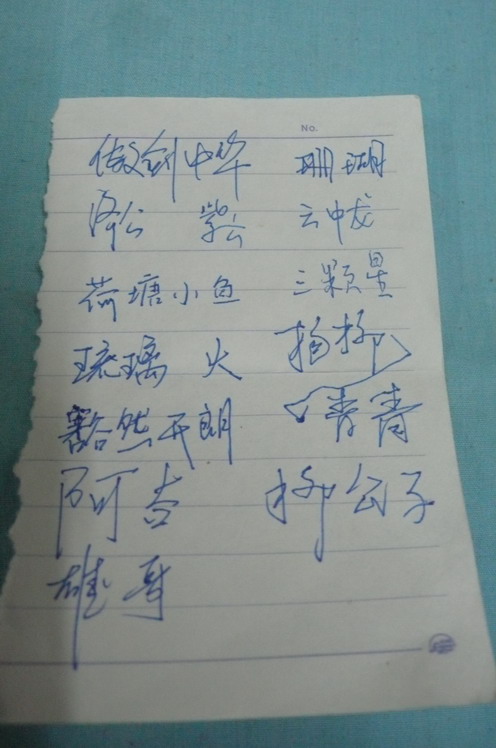 No.
傲剑中华 珊瑚
济公 紫云 云中龙
荷塘小鱼 三颗星
琉璃火 杨柳
豁然开朗 青青
阿吉 柳公子
雄哥